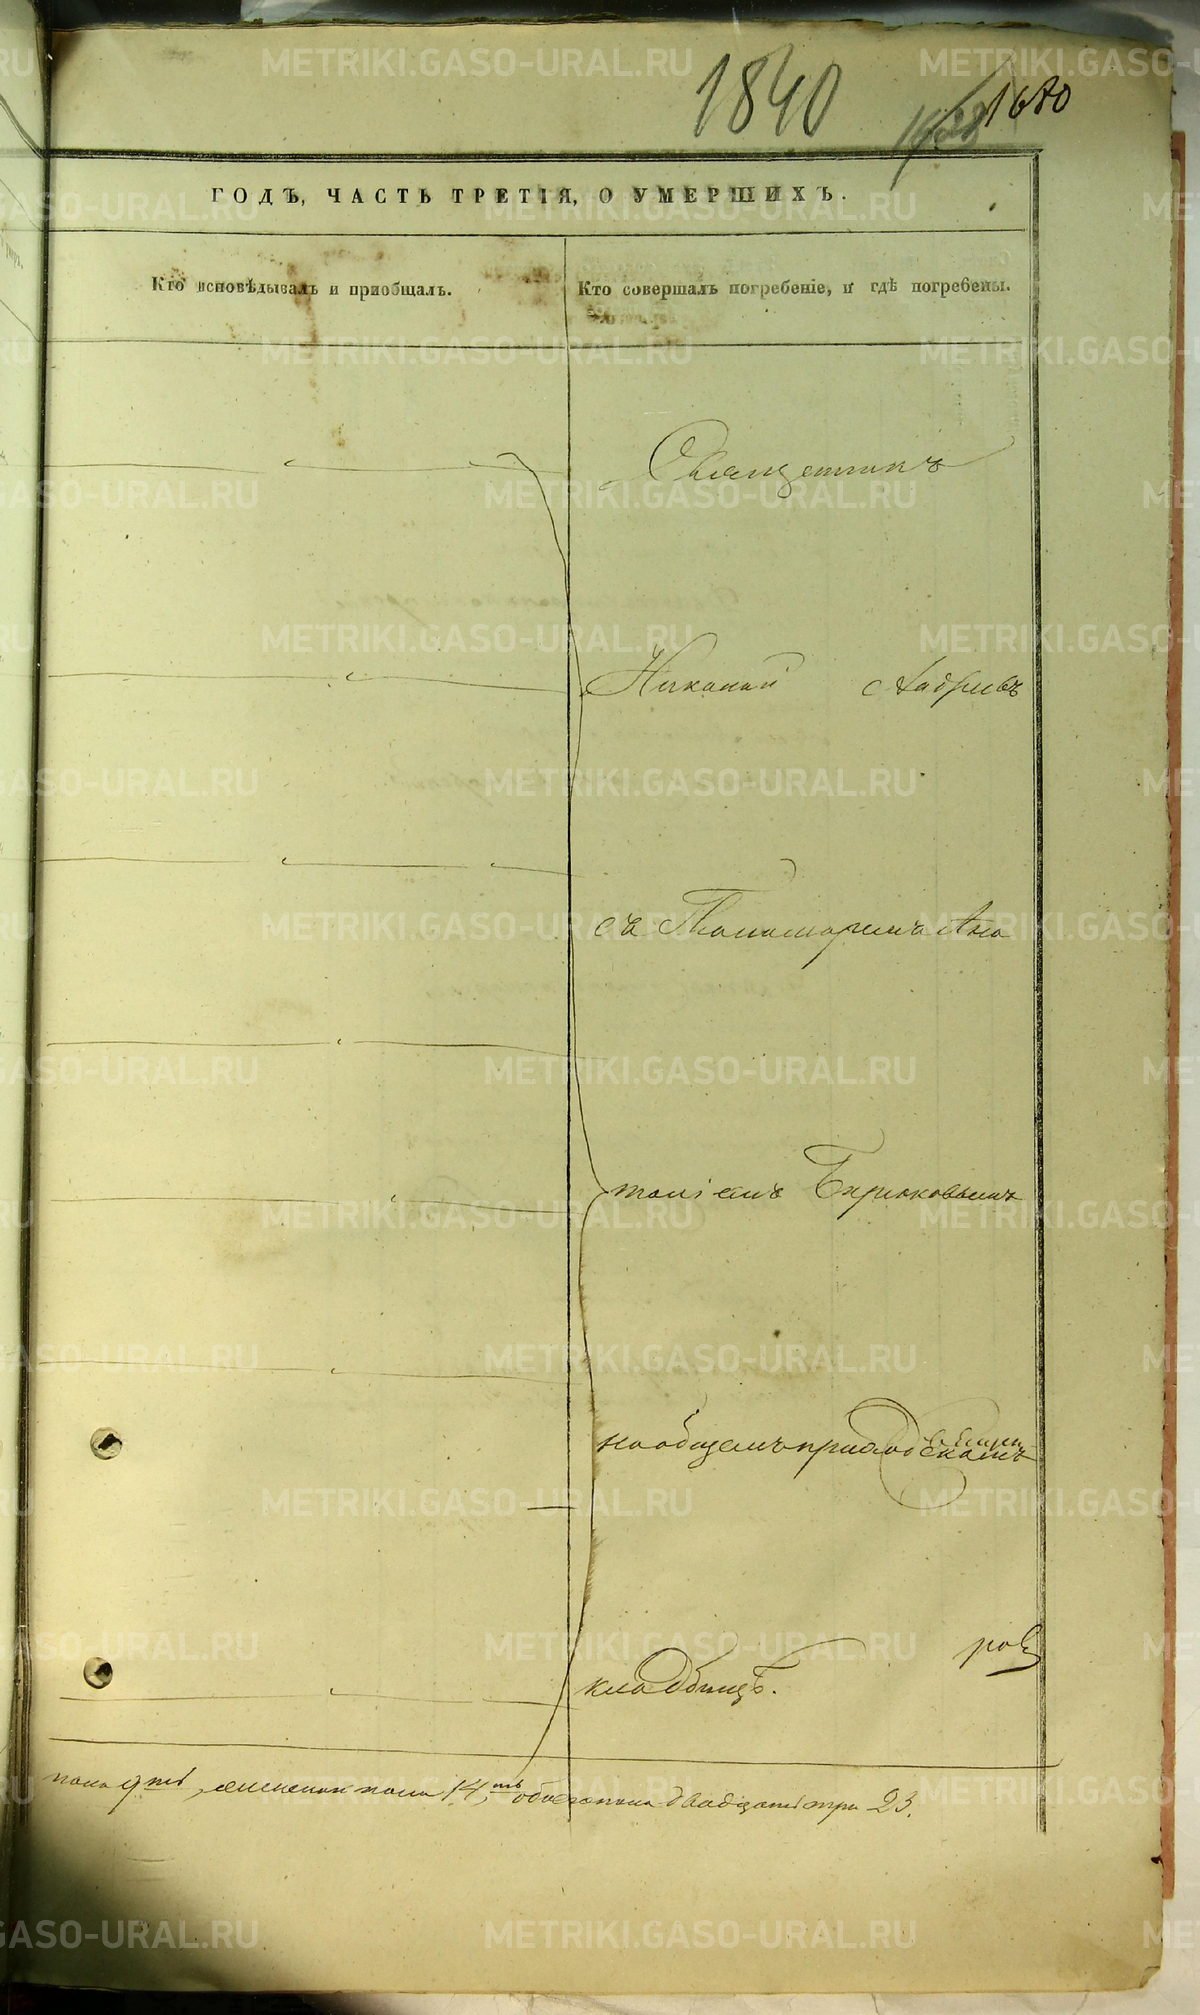 1840
1680
ГОДЪ, ЧАСТЬ ТРЕТІЯ, О УМЕРШИХЪ.
Кто исповѣдывалъ и пріобщалъ.
Кто совершалъ погребеніе, и гдѣ погребены.
Священникъ
Николай
съ Пономаремъ Ана
толіемъ Бирюковымъ
на общемъ приходскомъ
кладбищѣ.
пола 9ть, женска пола 14ть обоего пола двадцать три 23.
METRIKI.GASO-URAL.RU